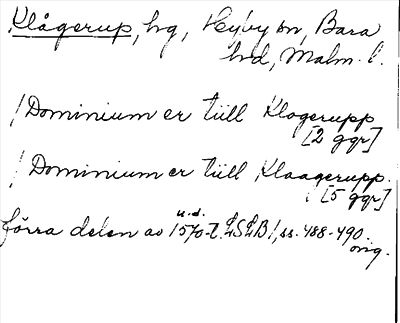 Klågerup, hg, Hyby sn, Bara
hd, Malm. l.
/Dominium er tiill Klogerupp
[2 ggr]
/Dominium er tiill Klaagerupp.
[5 ggr]
u.d.
förra delen av 1570-t. LSLB!, ss. 488-490.
orig.